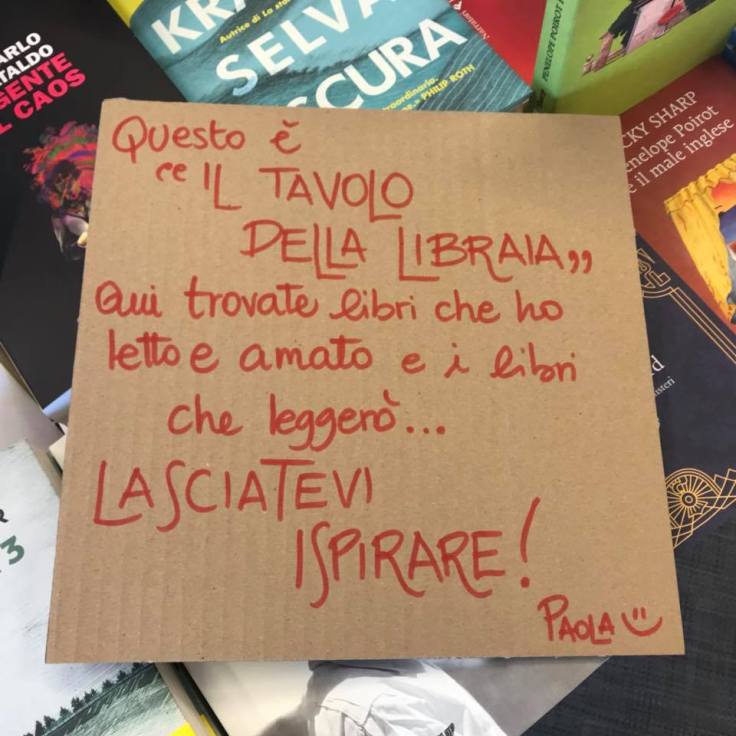 ARLO
TALDO
GENTE
L CAOS
KRA
Autrice di La sto
SELVA
SCURA
PHILIP ROTH
PENELOPE POIROT
CKY SHARP
enelope Poirot
e il male inglese
Questo è
“IL TAVOLO
DELLA LIBRAIA„
Qui trovate libri che ho
letto e amato e i libri
che leggerò...
LASCIATEVI
ISPIRARE!
PAOLA
R
3
d
isteri